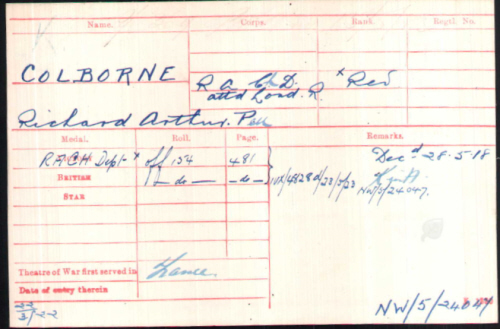 Name. Corps. Rank. Regtl. No.
COLBORNE R A Ch D. x Rev
attd Lond. R.
Richard Arthur. P
Medal. Roll. Page. Remarks.
R A C H Dept x Off 154 481 Dec'd 28.5.18
BRITISH — do — — do —
NW/5/24047.
STAR
Theatre of War first served in France.
Date of entry therein
3/22
NW/5/24047